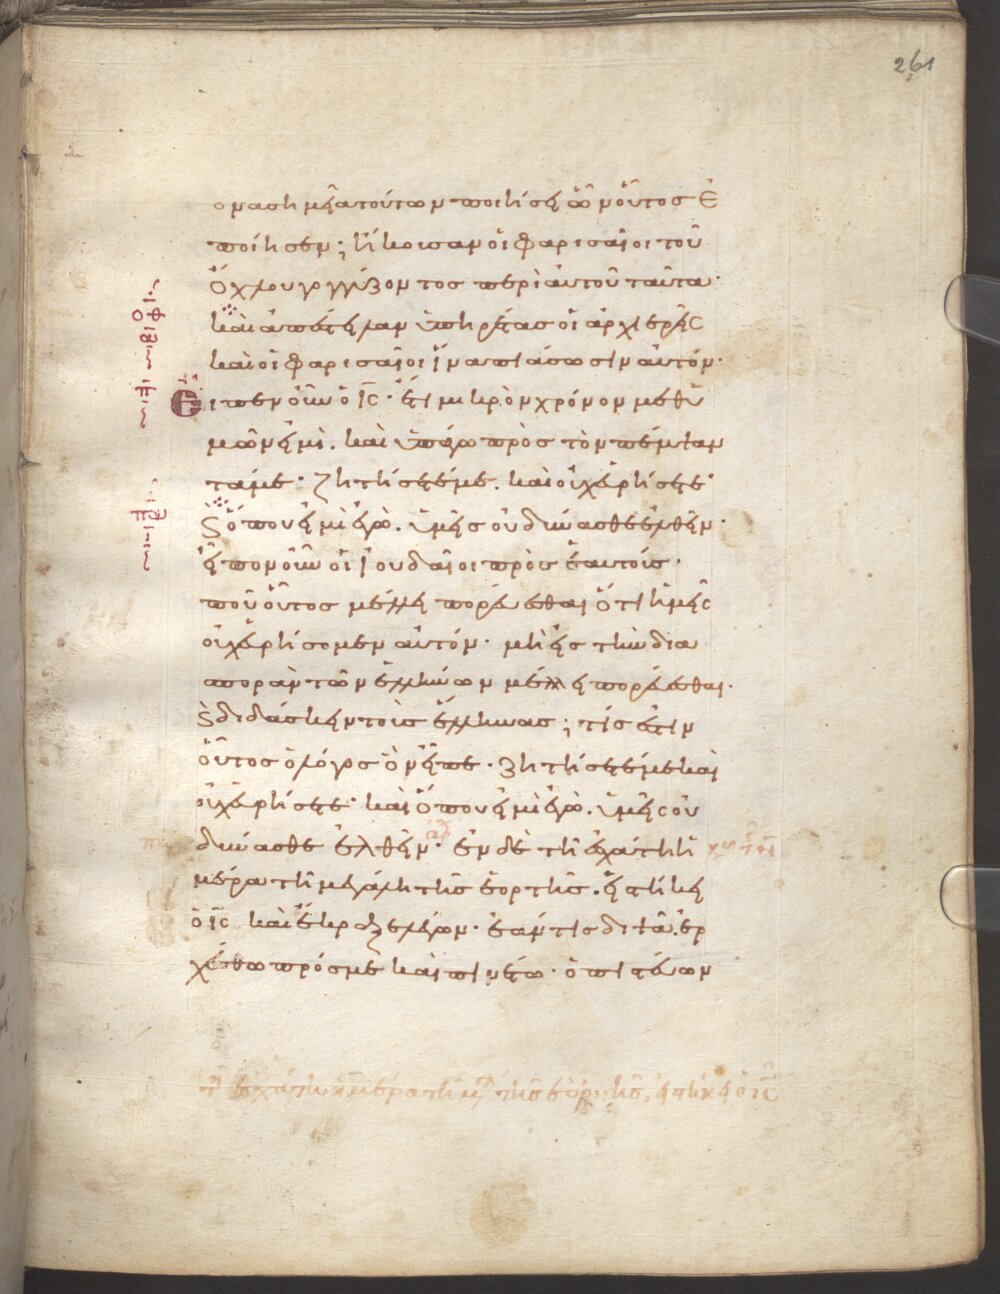 261
ονα σημεῖα τούτων ποιήσει ὧν οὗτος ἐ
ποίησεν; ἤκουσαν οἱ φαρισαῖοι τοῦ
ὄχλου γογγύζοντος περὶ αὐτοῦ ταῦτα·
καὶ ἀπέστειλαν ὑπηρέτας οἱ ἀρχιερεῖς
καὶ οἱ φαρισαῖοι ἵνα πιάσωσιν αὐτόν·
Εἶπεν οὖν ὁ ις· ἔτι μικρὸν χρόνον μεθ ὑ
μῶν εἰμὶ. καὶ ὑπάγω πρὸς τὸν πέμψαν
τά με· ζητήσετέ με. καὶ οὐχ εὑρήσετε·
ϗ ὅπου εἰμὶ ἐγὼ. ὑμεῖς οὐ δύνασθε ἐλθεῖν·
εἶπον οὖν οἱ ἰουδαῖοι πρὸς ἑαυτούς·
ποῦ οὗτος μέλλει πορεύεσθαι ὅτι ἡμεῖς
οὐχ εὑρήσομεν αὐτόν· μὴ εἰς τὴν δια
σπορὰν τῶν ἑλλήνων μέλλει πορεύεσθαι·
ϗ διδάσκειν τοὺς ἕλληνας; τίς ἐστιν
οὗτος ὁ λόγος ὃν εἶπε· ζητήσετέ με καὶ
οὐχ εὑρήσετε· καὶ ὅπου εἰμὶ ἐγὼ. ὑμεῖς οὐ
δύνασθε ἐλθεῖν· ἐν δὲ τῆ ἐσχάτη ἡ
μέρα τῆ μεγάλη τῆς ἑορτῆς. εἱστήκει
ὁ ις καὶ ἔκραξε λέγων· ἐάν τις διψᾶ. ἐρ
χέσθω πρός με καὶ πινέτω· ὁ πιστεύων
τῆ ἐσχάτη ἡμέρα τῆ μεγάλη τῆς ἑορτῆς, εἱστήκει ὁ ις